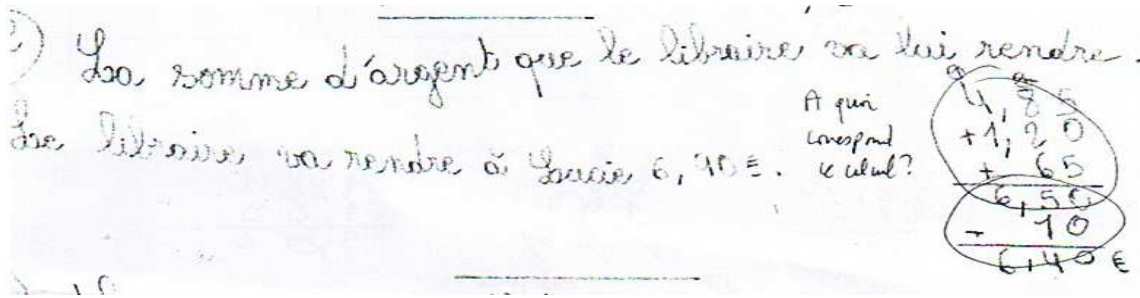 2) La somme d'argent que le libraire va lui rendre.
Le libraire va rendre à Lucie 6,40€.
A quoi
correspond
ce calcul?
4,85
+1,20
+ 65
6,50
- 10
6,40€